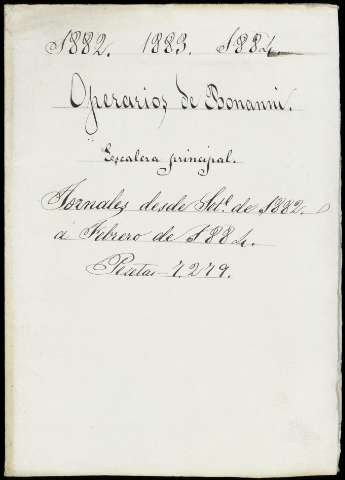 1882. 1883. 1884
Operarios de Bonanni.
Escalera principal.
Jornales desde Set.e de 1882.
á Febrero de 1884.
Pesetas 7.279.